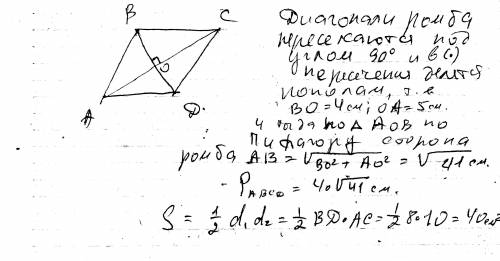 B C
A D.
Диагонали ромба
пересекаются под
углом 90° и в (•)
пересечения делятся
пополам, т.е
BO = 4см; OA = 5см.
и тогда по Δ AOB по
Пифагору сторона
ромба AB = √BO² + AO² = √41 см.
P ABCD = 4·√41 см.
S = 1/2 d₁ d₂ = 1/2 BD·AC = 1/2 8·10 = 40см²